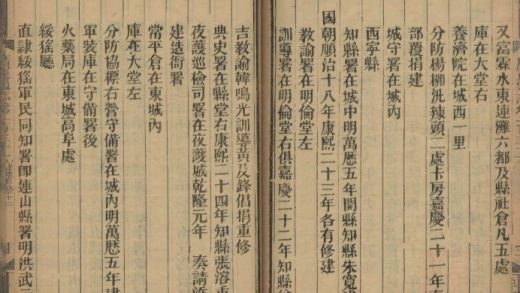 又富霖水東連灘六都及縣社倉凡五處
庫在大堂右
養濟院在城西一里
分防楊柳洸辣頭二處卡房嘉慶二十一年
部覆捐建
城守署在城內
西寧縣
知縣署在城中明萬歷五年開縣知縣朱寬
國朝順治十八年康熙二十三年各有修建
教諭署在明倫堂左
訓導署在明倫堂右俱嘉慶二十二年知縣
吉教諭韓鳴訓導黃及鋒倡捐重修
典史署在縣堂右康熙二十四年知縣張溶重
夜護巡檢司署在夜護城乾隆元年 奏請
建造衙署
常平倉在東城內
庫在大堂左
分防協標右營守備署在城內明萬歷五年建
軍裝庫在守備署後
火藥局在東城高阜處
綏猺廳
直隸綏猺軍民同知署即連山縣署明洪武二